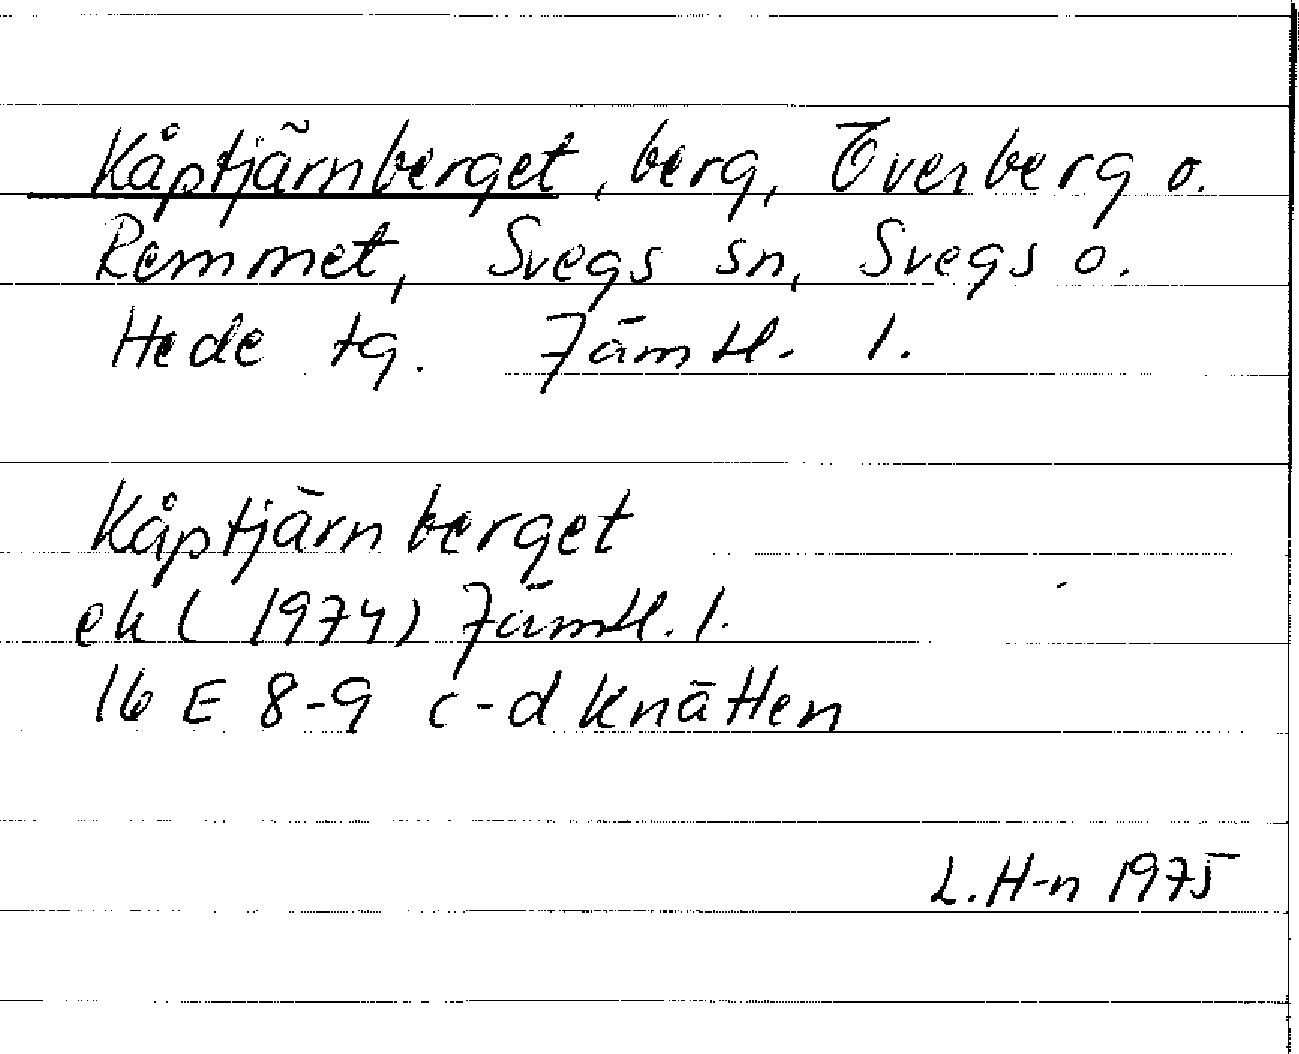 Kåptjärnberget, berg, Överberg o.
Remmet, Svegs sn, Svegs o.
Hede tg. Jämtl. l.
Kåptjärnberget
ek (1974) Jämtl. l.
16 E 8-9 c-d Knätten
L. H-n 1975